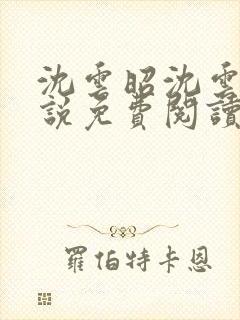 沈雲昭沈雲
說免費閱讀
羅伯特卡恩